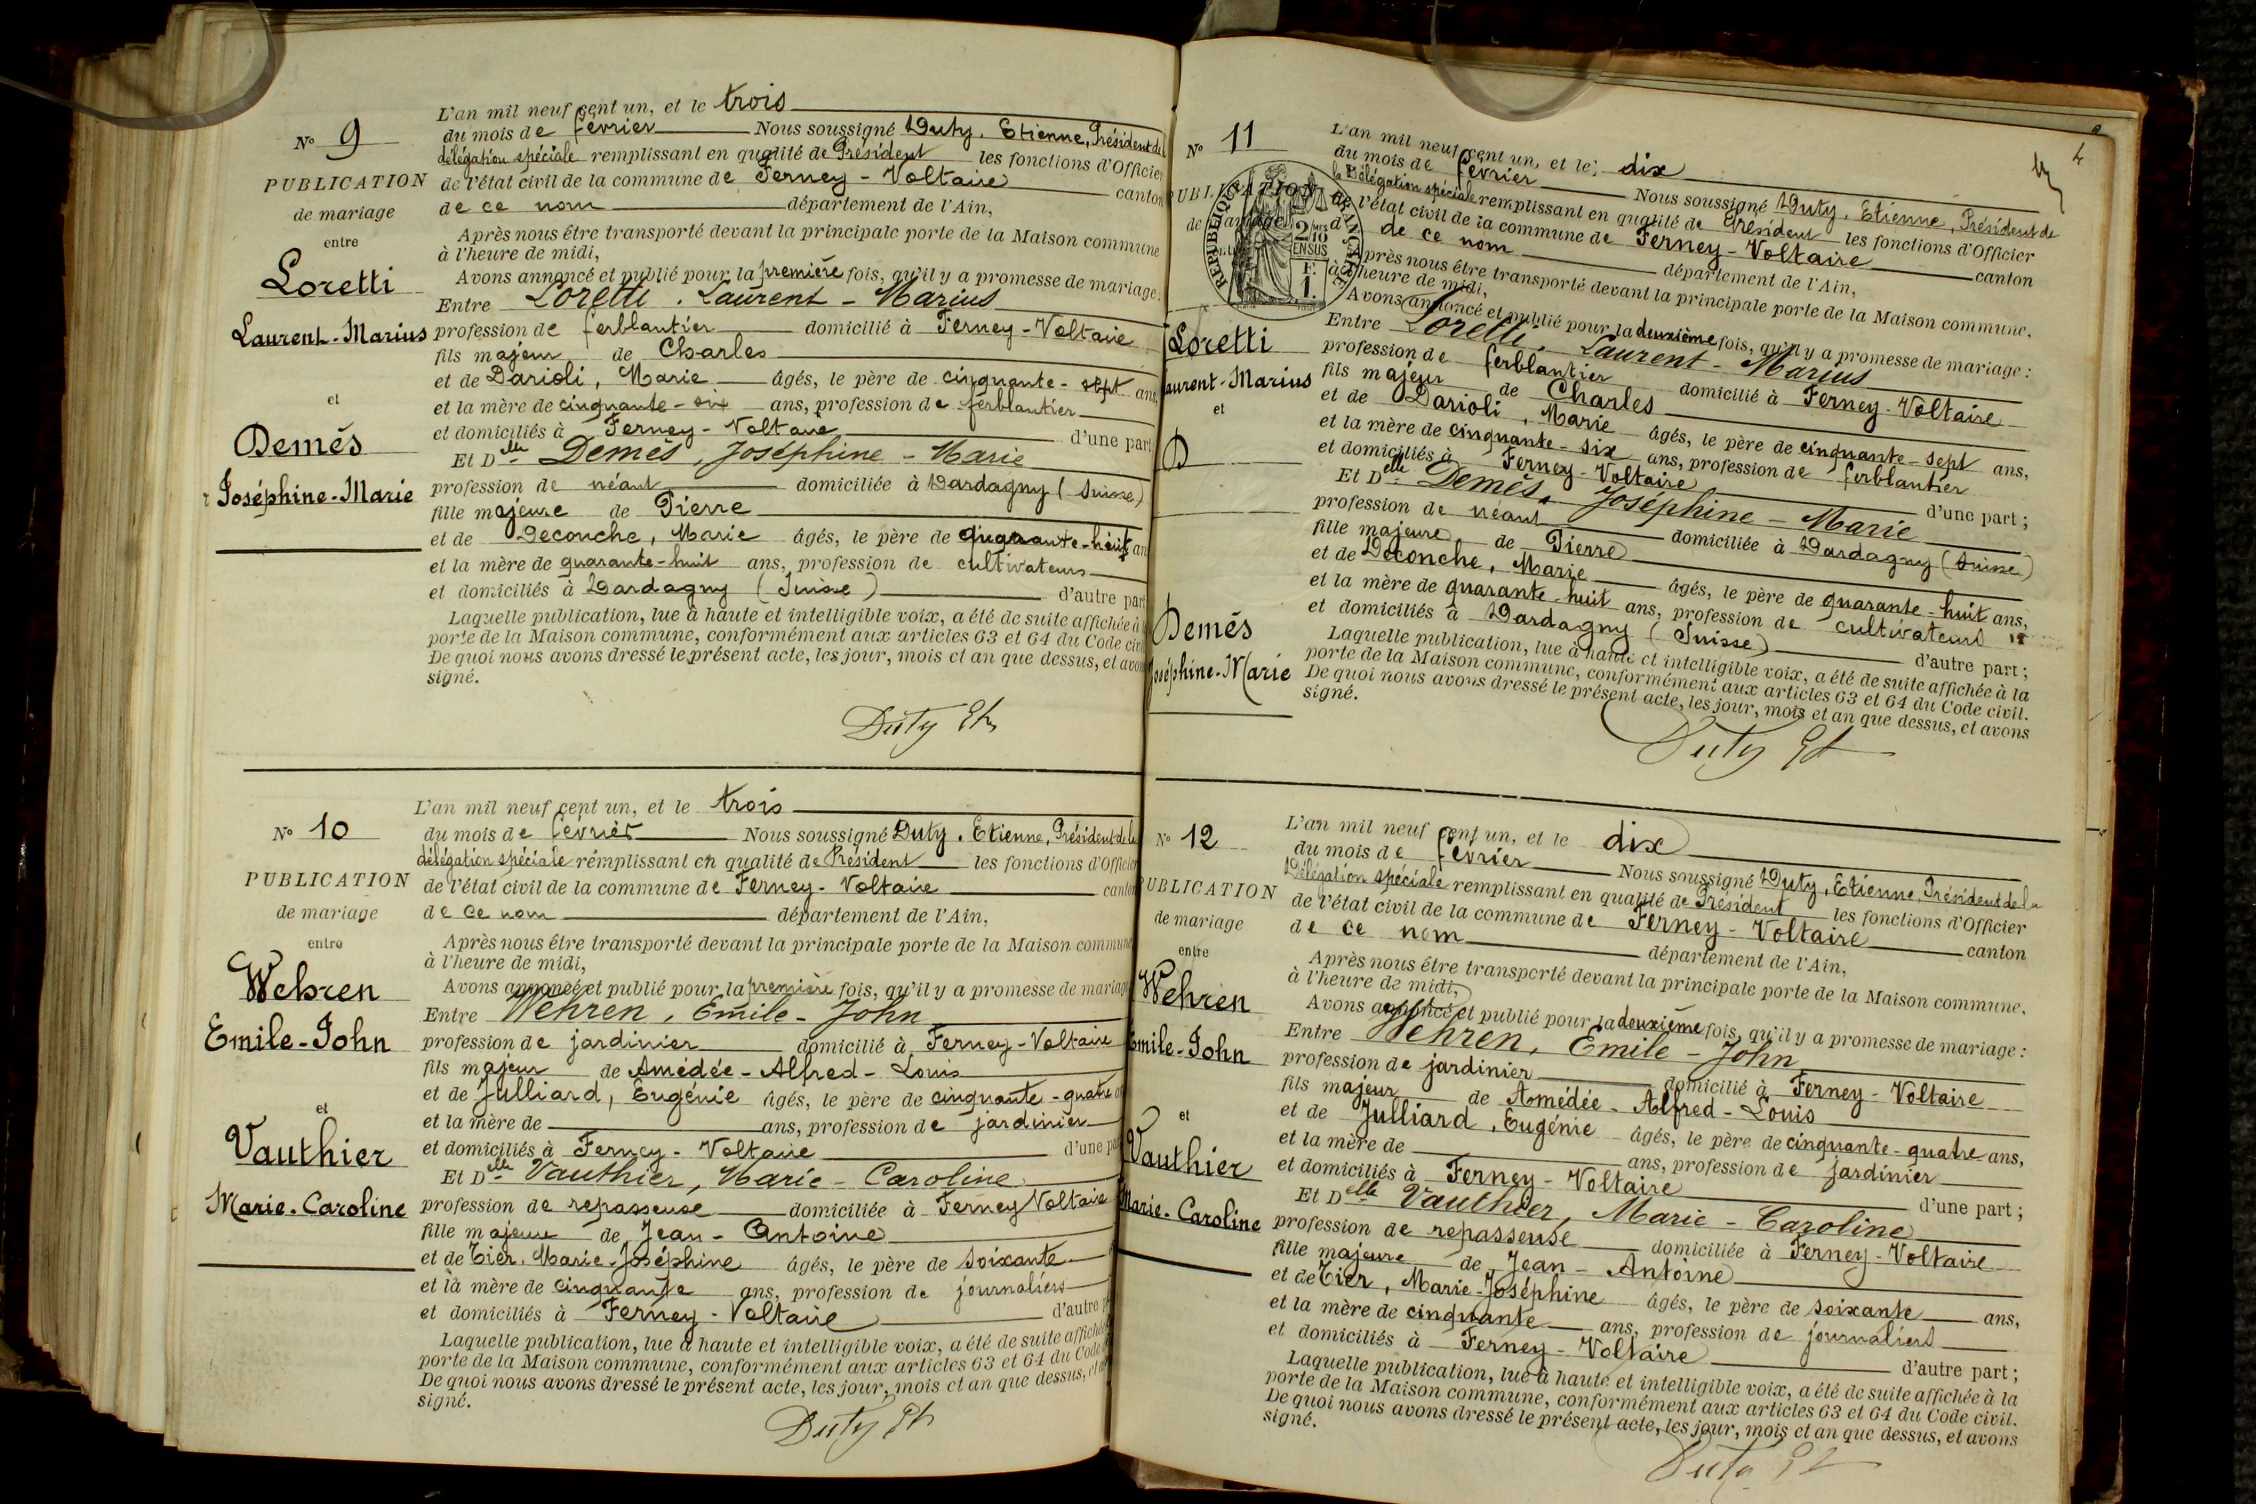 N° 9
PUBLICATION
de mariage
entre
Loretti
Laurent-Marius
et
Demés
Joséphine-Marie
L'an mil neuf cent un, et le trois
du mois de février Nous soussigné Duty, Etienne, Président de
délégation spéciale remplissant en qualité de Président les fonctions d'Officier
de l'état civil de la commune de Ferney-Voltaire canton
de ce nom département de l'Ain,
Après nous être transporté devant la principale porte de la Maison commune
à l'heure de midi,
Avons annoncé et publié pour la première fois, qu'il y a promesse de mariage:
Entre Loretti, Laurent-Marius
profession de ferblantier domicilié à Ferney-Voltaire
fils majeur de Charles
et de Darioli, Marie âgés, le père de cinquante-sept ans
et la mère de cinquante-six ans, profession de ferblantier
et domiciliés à Ferney-Voltaire d'une part
Et Delle Demés, Joséphine-Marie
profession de néant domiciliée à Dardagny (Suisse)
fille majeure de Pierre
et de Deconche, Marie âgés, le père de quarante-huit an
et la mère de quarante-huit ans, profession de cultivateurs
et domiciliés à Dardagny (Suisse) d'autre part
Laquelle publication, lue à haute et intelligible voix, a été de suite affichée à
porte de la Maison commune, conformément aux articles 63 et 64 du Code civ
De quoi nous avons dressé le présent acte, les jour, mois et an que dessus, et avon
signé.
Duty Et
N° 10
PUBLICATION
de mariage
entre
Wehren
Emile-John
et
Vauthier
Marie-Caroline
L'an mil neuf cent un, et le trois
du mois de février Nous soussigné Duty, Etienne, Président de la
délégation spéciale remplissant en qualité de Président les fonctions d'Officier
de l'état civil de la commune de Ferney-Voltaire canton
de ce nom département de l'Ain,
Après nous être transporté devant la principale porte de la Maison commune
à l'heure de midi,
Avons annoncé et publié pour la première fois, qu'il y a promesse de mariage
Entre Wehren, Emile-John
profession de jardinier domicilié à Ferney-Voltaire
fils majeur de Amédée-Alfred-Louis
et de Julliard, Eugénie âgés, le père de cinquante-quatre
et la mère de ans, profession de jardinier
et domiciliés à Ferney-Voltaire d'une part
Et Delle Vauthier, Marie-Caroline
profession de repasseuse domiciliée à Ferney Voltaire
fille majeure de Jean-Antoine
et de Tier, Marie-Joséphine âgés, le père de soixante
et la mère de cinquante ans, profession de journaliers
et domiciliés à Ferney-Voltaire d'autre
Laquelle publication, lue à haute et intelligible voix, a été de suite affichée
porte de la Maison commune, conformément aux articles 63 et 64 du Code
De quoi nous avons dressé le présent acte, les jour, mois et an que dessus, et
signé.
Duty Et
4
N° 11
PUBLICATION
de mariage
RÉPUBLIQUE FRANÇAISE
2/10
EN SUS
F.
1.
Loretti
Laurent-Marius
et
D
Demés
Joséphine-Marie
L'an mil neuf cent un, et le dix
du mois de février Nous soussigné Duty, Etienne, Président de
la Délégation spéciale remplissant en qualité de Président les fonctions d'Officier
de l'état civil de la commune de Ferney-Voltaire canton
de ce nom département de l'Ain,
Après nous être transporté devant la principale porte de la Maison commune.
à l'heure de midi,
Avons annoncé et publié pour la deuxième fois, qu'il y a promesse de mariage:
Entre Loretti, Laurent-Marius
profession de ferblantier domicilié à Ferney-Voltaire
fils majeur de Charles
et de Darioli, Marie âgés, le père de cinquante-sept ans,
et la mère de cinquante-six ans, profession de ferblantier
et domiciliés à Ferney-Voltaire d'une part;
Et Delle Demés, Joséphine-Marie
profession de néant domiciliée à Dardagny (Suisse)
fille majeure de Pierre
et de Deconche, Marie âgés, le père de quarante-huit ans,
et la mère de quarante-huit ans, profession de cultivateurs
et domiciliés à Dardagny (Suisse) d'autre part;
Laquelle publication, lue à haute et intelligible voix, a été de suite affichée à la
porte de la Maison commune, conformément aux articles 63 et 64 du Code civil.
De quoi nous avons dressé le présent acte, les jour, mois et an que dessus, et avons
signé.
Duty Et
N° 12
PUBLICATION
de mariage
entre
Wehren
Emile-John
et
Vauthier
Marie-Caroline
L'an mil neuf cent un, et le dix
du mois de février Nous soussigné Duty, Etienne, Président de la
Délégation spéciale remplissant en qualité de Président les fonctions d'Officier
de l'état civil de la commune de Ferney-Voltaire canton
de ce nom département de l'Ain,
Après nous être transporté devant la principale porte de la Maison commune.
à l'heure de midi,
Avons annoncé et publié pour la deuxième fois, qu'il y a promesse de mariage:
Entre Wehren, Emile-John
profession de jardinier domicilié à Ferney-Voltaire
fils majeur de Amédée-Alfred-Louis
et de Julliard, Eugénie âgés, le père de cinquante-quatre ans,
et la mère de ans, profession de jardinier
et domiciliés à Ferney-Voltaire d'une part;
Et Delle Vauthier, Marie-Caroline
profession de repasseuse domiciliée à Ferney-Voltaire
fille majeure de Jean-Antoine
et de Tier, Marie-Joséphine âgés, le père de soixante ans,
et la mère de cinquante ans, profession de journaliers
et domiciliés à Ferney-Voltaire d'autre part;
Laquelle publication, lue à haute et intelligible voix, a été de suite affichée à la
porte de la Maison commune, conformément aux articles 63 et 64 du Code civil.
De quoi nous avons dressé le présent acte, les jour, mois et an que dessus, et avons
signé.
Duty Et